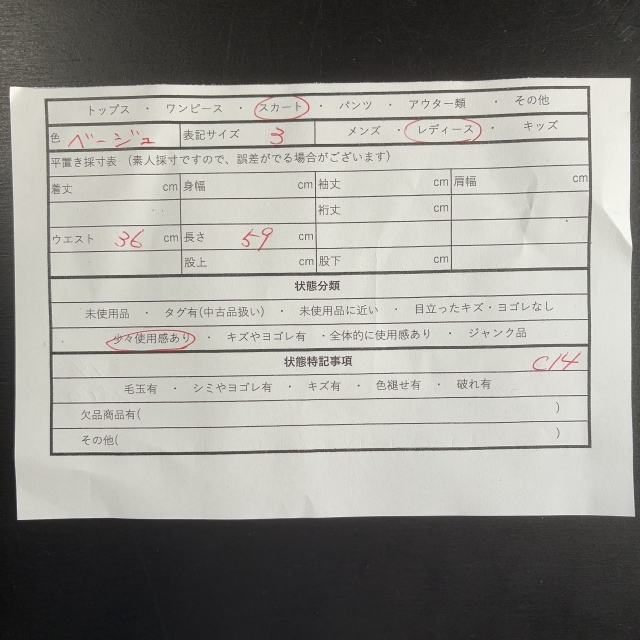 トップス ・ ワンピース ・ スカート ・ パンツ ・ アウター類 ・ その他
色 ベージュ 表記サイズ 3 メンズ ・ レディース ・ キッズ
平置き採寸表 (素人採寸ですので、誤差がでる場合がございます)
着丈 cm 身幅 cm 袖丈 cm 肩幅 cm
裄丈 cm
ウエスト 36 cm 長さ 59 cm
股上 cm 股下 cm
状態分類
未使用品 ・ タグ有(中古品扱い) ・ 未使用品に近い ・ 目立ったキズ・ヨゴレなし
少々使用感あり ・ キズやヨゴレ有 ・全体的に使用感あり ・ ジャンク品
状態特記事項 C14
毛玉有 ・ シミやヨゴレ有 ・ キズ有 ・ 色褪せ有 ・ 破れ有
欠品商品有( )
その他( )